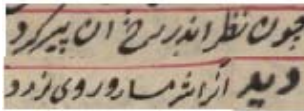 چون نظر اندر رخ آن پیر کرد
دید از شرمسار و روی زرد